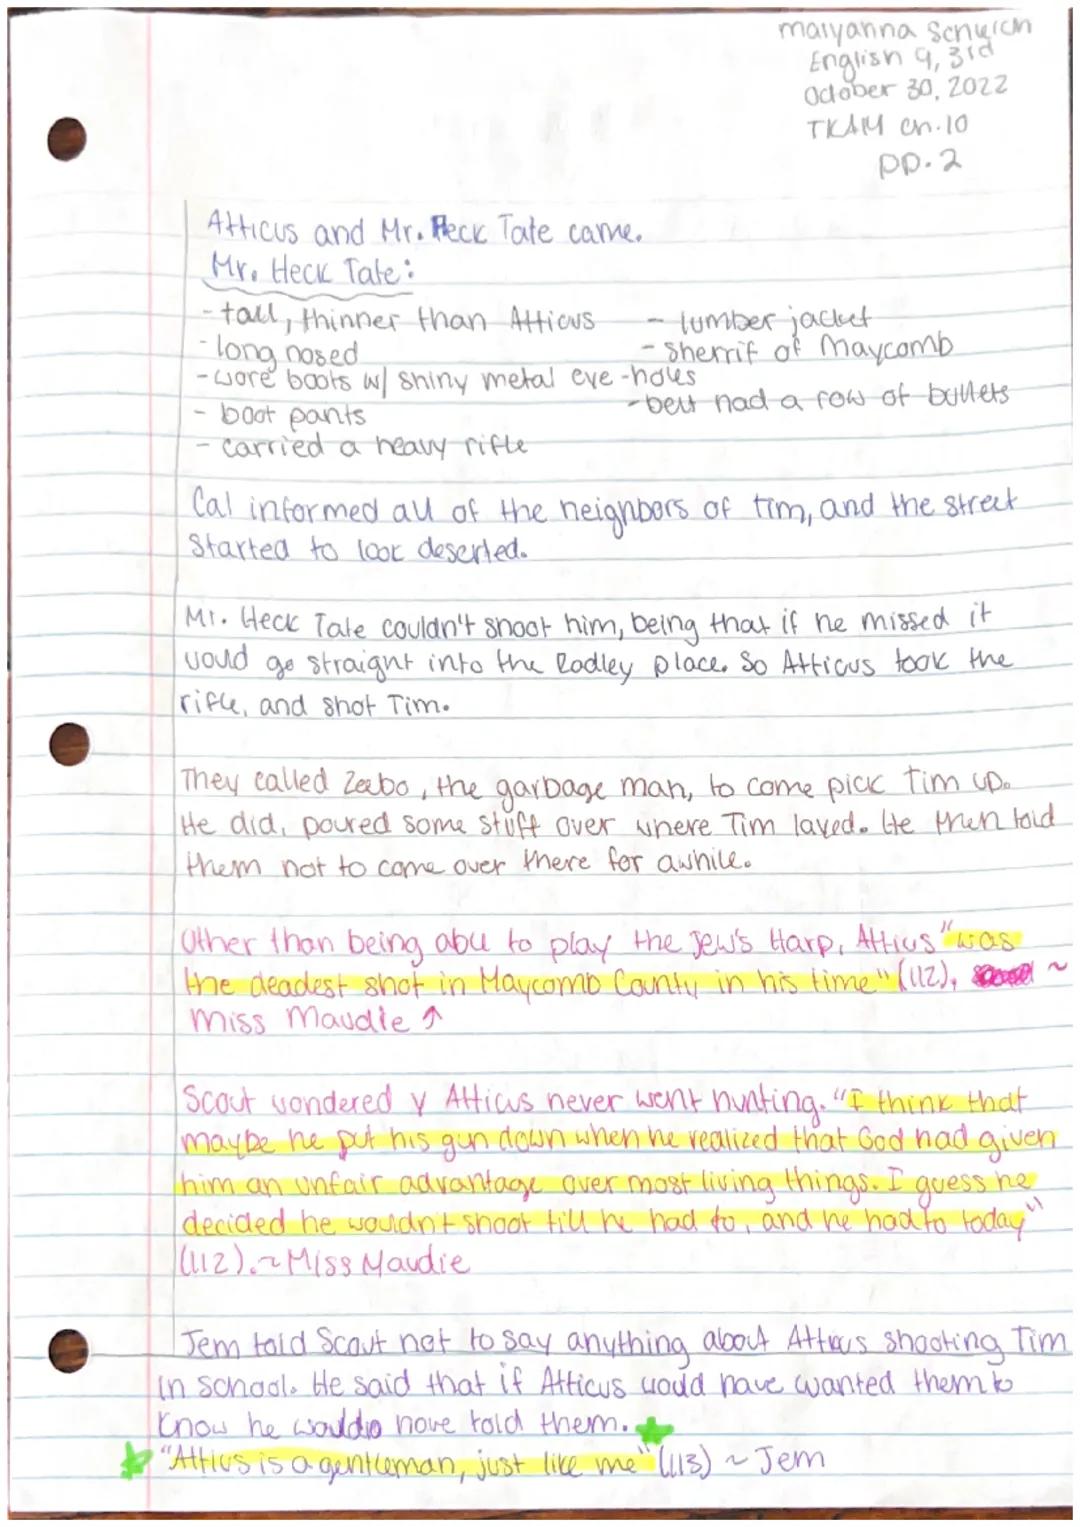 maryanna
English 9, 3rd
October 30, 2022
TKAM Ch.10
pp. 2
Atticus and Mr. Heck Tate came.
Mr. Heck Tate:
- tall, thinner than Atticus - lumber jacket
- long nosed - sherrif of Maycomb
- wore boots w/ shiny metal eye-holes
- boot pants - belt had a row of bullets
- carried a heavy rifle
Cal informed all of the neighbors of tim, and the street
started to look deserted.
Mr. Heck Tate couldn't shoot him, being that if he missed it
would go straight into the Radley place. So Atticus took the
rifle, and shot Tim.
They called Zeebo, the garbage man, to come pick Tim up.
He did, poured some stuff over where Tim layed. He then told
them not to come over there for awhile.
Other than being able to play the Jew's Harp, Atticus "was
the deadest shot in Maycomb County in his time" (112), ~
Miss Maudie ↑
Scout wondered y Atticus never went hunting. "I think that
maybe he put his gun down when he realized that God had given
him an unfair advantage over most living things. I guess he
decided he wouldn't shoot till he had to, and he had to today"
(112). ~ Miss Maudie
Jem told Scout not to say anything about Atticus shooting Tim
in school. He said that if Atticus would have wanted them to
know he would have told them.
"Atticus is a gentleman, just like me" (113) ~ Jem